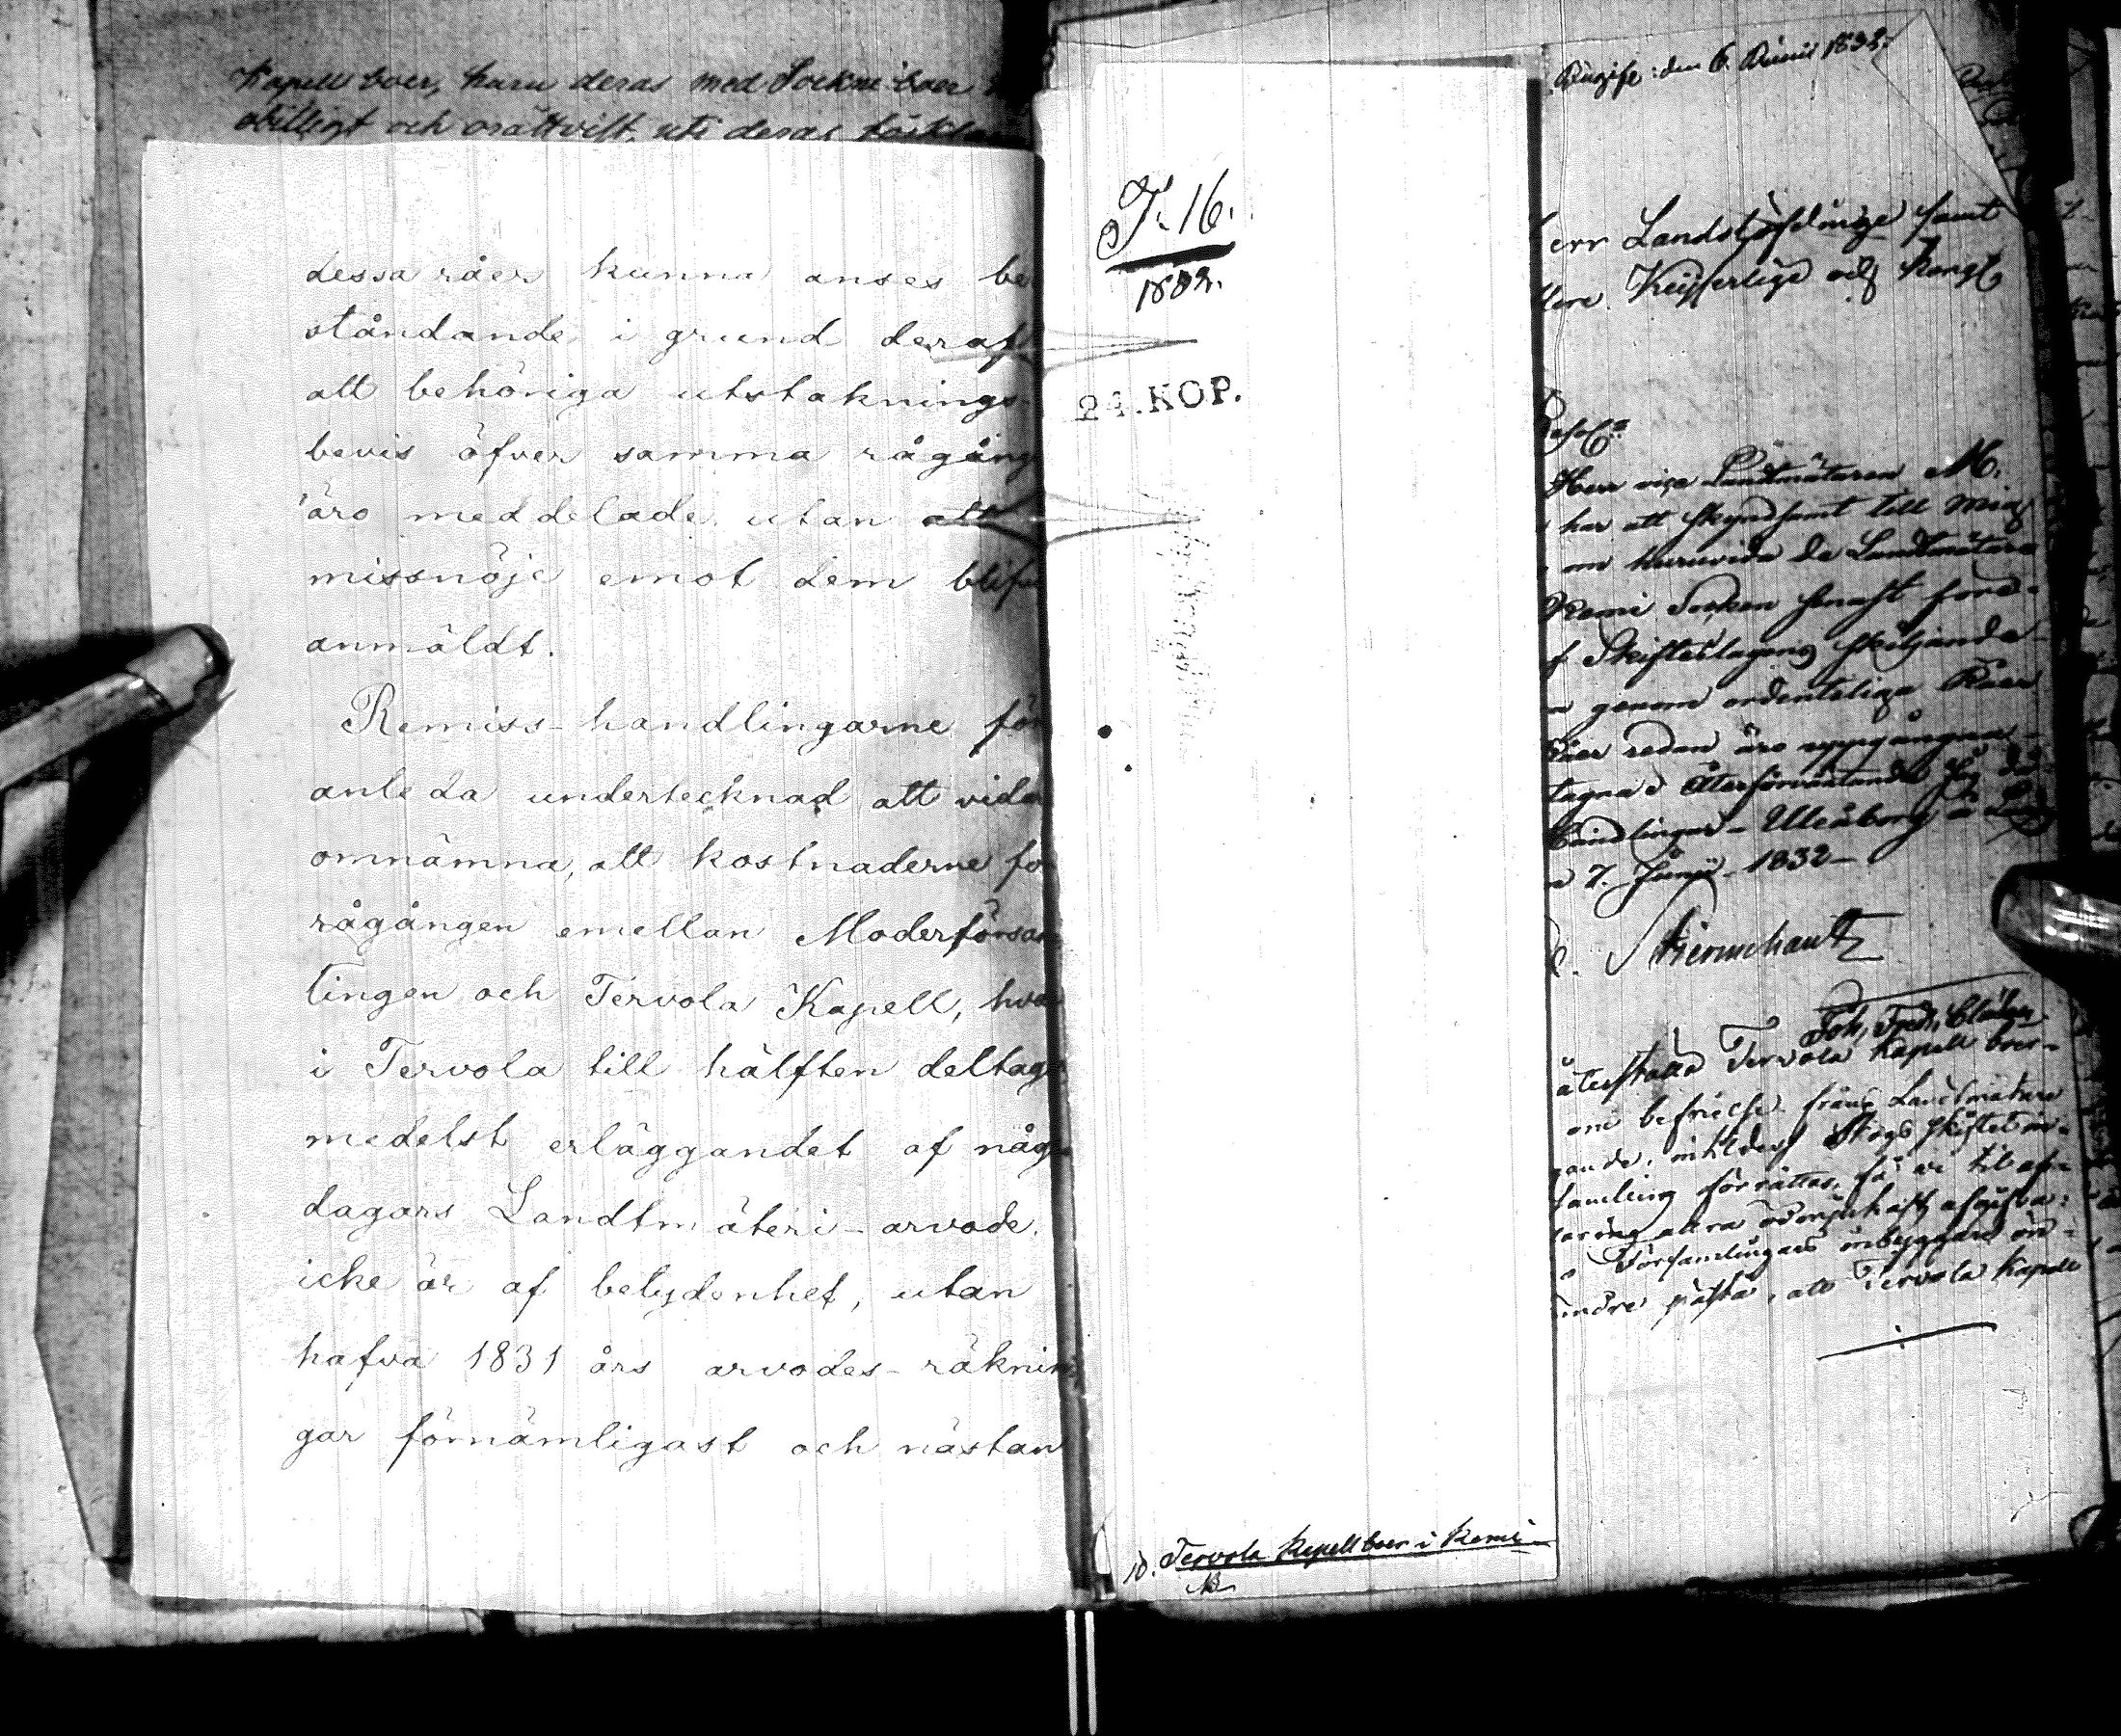 Kapell boer, huru deras med Sockne boer
obilligt och orättvist, uti deras
dessa råer kunna anses be
ståndande i grund deraf
att behöriga utstaknings-
bevis öfver samma rågång
äro meddelade, utan att
missnöje emot dem blifv
anmäldt.
Remiss-handlingarne för
anleda undertecknad att vida
omnämna, att kostnaderne fö
rågången emellan Moderförsam
lingen och Tervola Kapell, hva
i Tervola till hälften deltag
medelst erläggandet af någ
dagars Landtmäteri-arvode.
icke är af betydenhet, utan
hafva 1831 års arvodes-räknin
gar förnämligast och nästan
T. 16.
1832.
24.KOP.
10. Tervola Kapellboer i Kemi
den 6. Junii 1832.
err Landshöfdinge samt
Keyserliga och Kongl
Herr vice Landtmätaren M.
har att skyndsamt till mig
om huruvida de Landtmätare
Kemi Socken senast ford-
f Skifteslagens skiljande
genom ordenteliga Råer
råer redan äro uppgångna
tagna. Återförväntande Jag då
handlingar. Uleåborg å
n 7. Junii 1832
Stiernschantz
Joh. Fred.
återstälta Tervola Kapell boer-
om befrielse från Landtmätare
gande, intildess Skogs skiftet in-
samling förrättas, få vi til
aring allra ödmjukast afgifva:
Församlingens inbyggare
mdre påstå, att Tervola Kapell